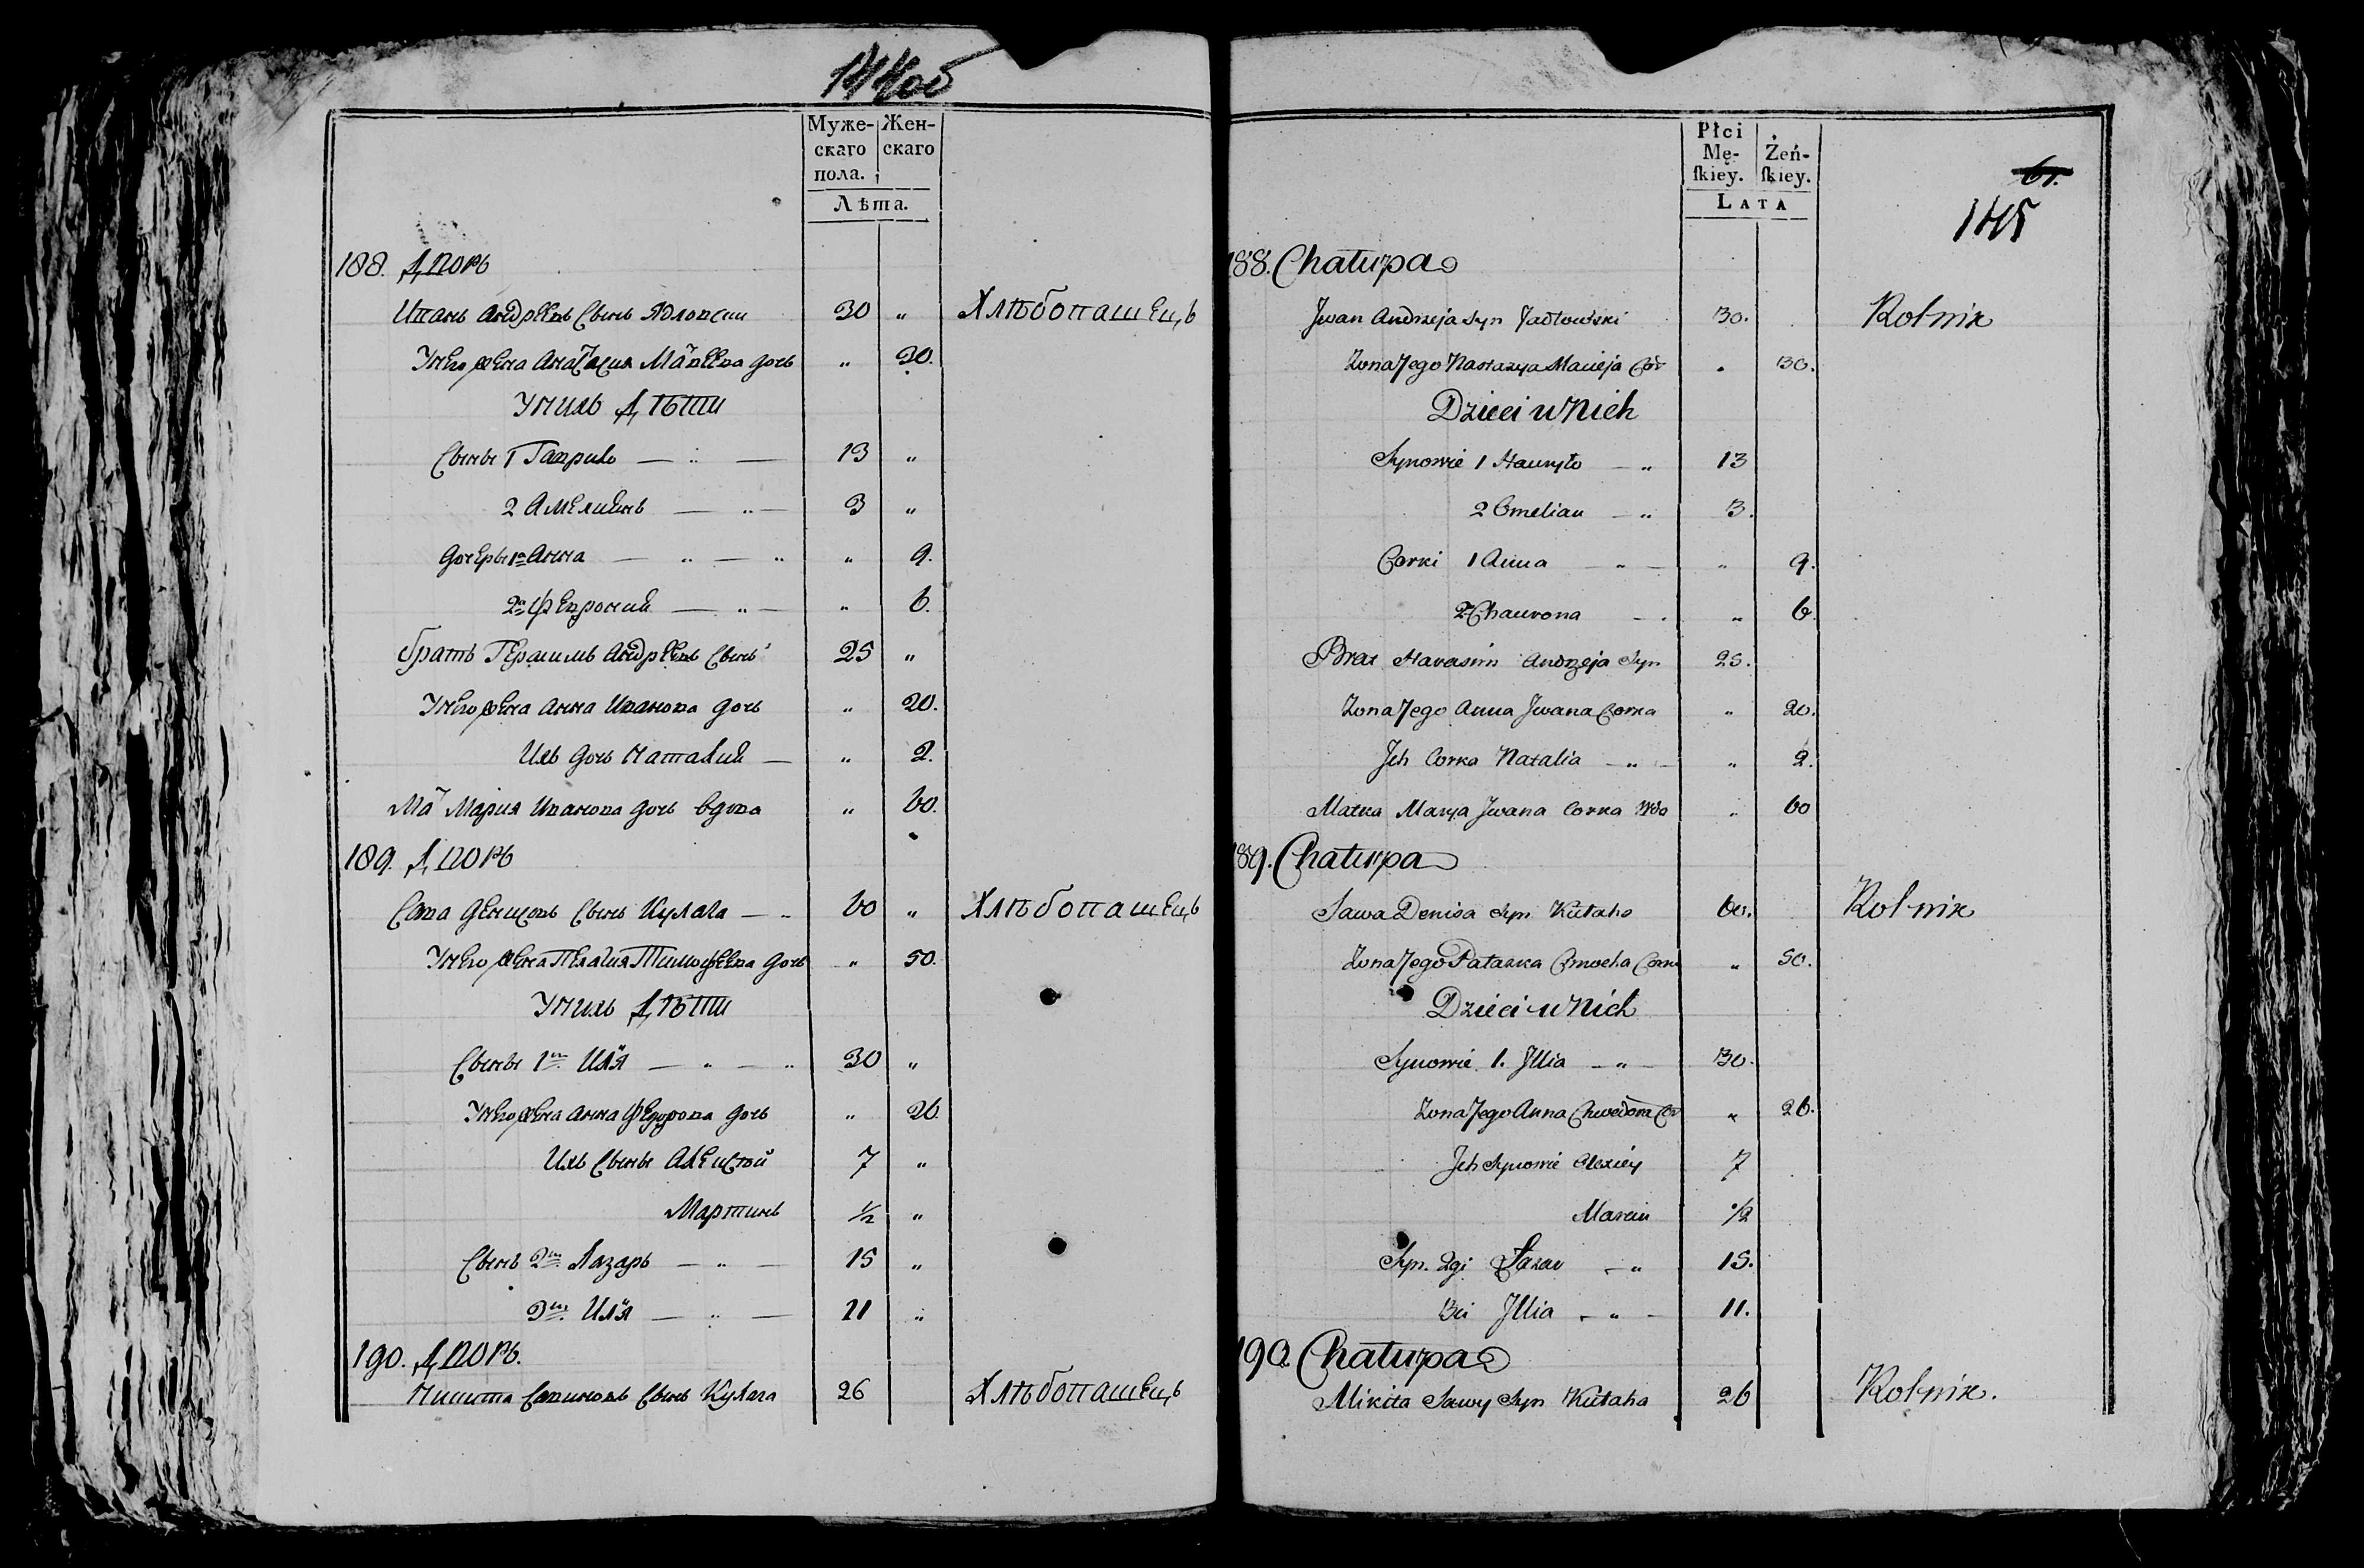 144об
Муже-
скаго
пола.
Жен-
скаго
Лѣта.
188. Дворъ
Иванъ Андреевъ Сынъ Ядловски 30 " Хлѣбопашецъ
Унего жена Анастасия Матвеева дочь " 30.
Унихъ Дѣти
Сыны 1 Гаврило — " — 13 "
2 Амелиянъ — " — 3 "
Дочеры 1я Анна — " — " " 9.
2я Феврония — " — " 6.
братъ Герасимъ Андреевъ Сынъ 25 "
Унего жена Анна Иванова дочь " 20.
Ихъ дочь Наталия — " 2.
Мать Мария Иванова дочь вдова " 60.
189. Дворъ
Сава Денисовъ Сынъ Кулага — " 60 " Хлѣбопашецъ
Унего жена Пелагия Тимофеева дочь " 50.
Унихъ Дѣти
Сыны 1й Илья — " — " 30 "
Унего жена Анна Федорова дочь " 26
Ихъ Сыны Алексѣй 7 "
Мартинъ ½ "
Сынъ 2й Лазаръ — " — 15 "
3й Илья — " — 11 "
190. Дворъ.
Никита Савиновъ Сынъ Кулага 26 Хлѣбопашецъ
Płci
Mę-
ſkiey.
Żeń-
ſkiey.
LATA
61.
145
188. Chałupa
Jwan Andrzeja Syn Jadłowski 30. Rolnik
Zona Jego Nastazya Macieja Cor " 30.
Dzieci u Nich
Synowie 1 Hauryło — " 13
2 Omelian — " 3.
Corki 1 Anna — " — " 9.
2 Chaurona — " " 6.
Brat Harasim Andrzeja Syn 25.
Zona Jego Anna Jwana Corka " 20.
Jch Corka Natalia — " — " 2.
Matka Marya Jwana Corka Wdo " 60
189. Chałupa
Sawa Denisa Syn Kułaho 60. Rolnik
Zona Jego Pałaszka Cimocha Corka " 50.
Dzieci u Nich
Synowie 1. Jllia — " — 30.
Zona Jego Anna Chwedora Cor " 26.
Jch Synowie Alexiey 7
Marcin ½
Syn. 2gi Łazar — " 15.
3ci Jllia — " — 11.
190. Chałupa
Mikita Sawy Syn Kułaho 26 Rolnik.